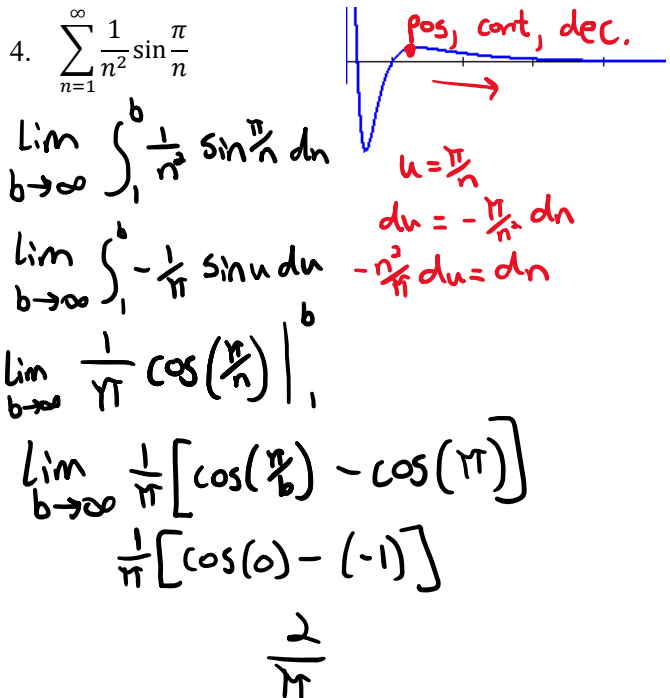 4. $\sum_{n=1}^{\infty} \frac{1}{n^2} \sin \frac{\pi}{n}$
pos, cont, dec.
$\lim_{b \to \infty} \int_1^b \frac{1}{n^2} \sin \frac{\pi}{n} \, dn$
$u = \frac{\pi}{n}$
$du = -\frac{\pi}{n^2} \, dn$
$\lim_{b \to \infty} \int_1^b -\frac{1}{\pi} \sin u \, du$
$-\frac{n^2}{\pi} \, du = dn$
$\lim_{b \to \infty} \frac{1}{\pi} \cos\left(\frac{\pi}{n}\right) \Big|_1^b$
$\lim_{b \to \infty} \frac{1}{\pi} \left[\cos\left(\frac{\pi}{b}\right) - \cos(\pi)\right]$
$\frac{1}{\pi} \left[\cos(0) - (-1)\right]$
$\frac{2}{\pi}$